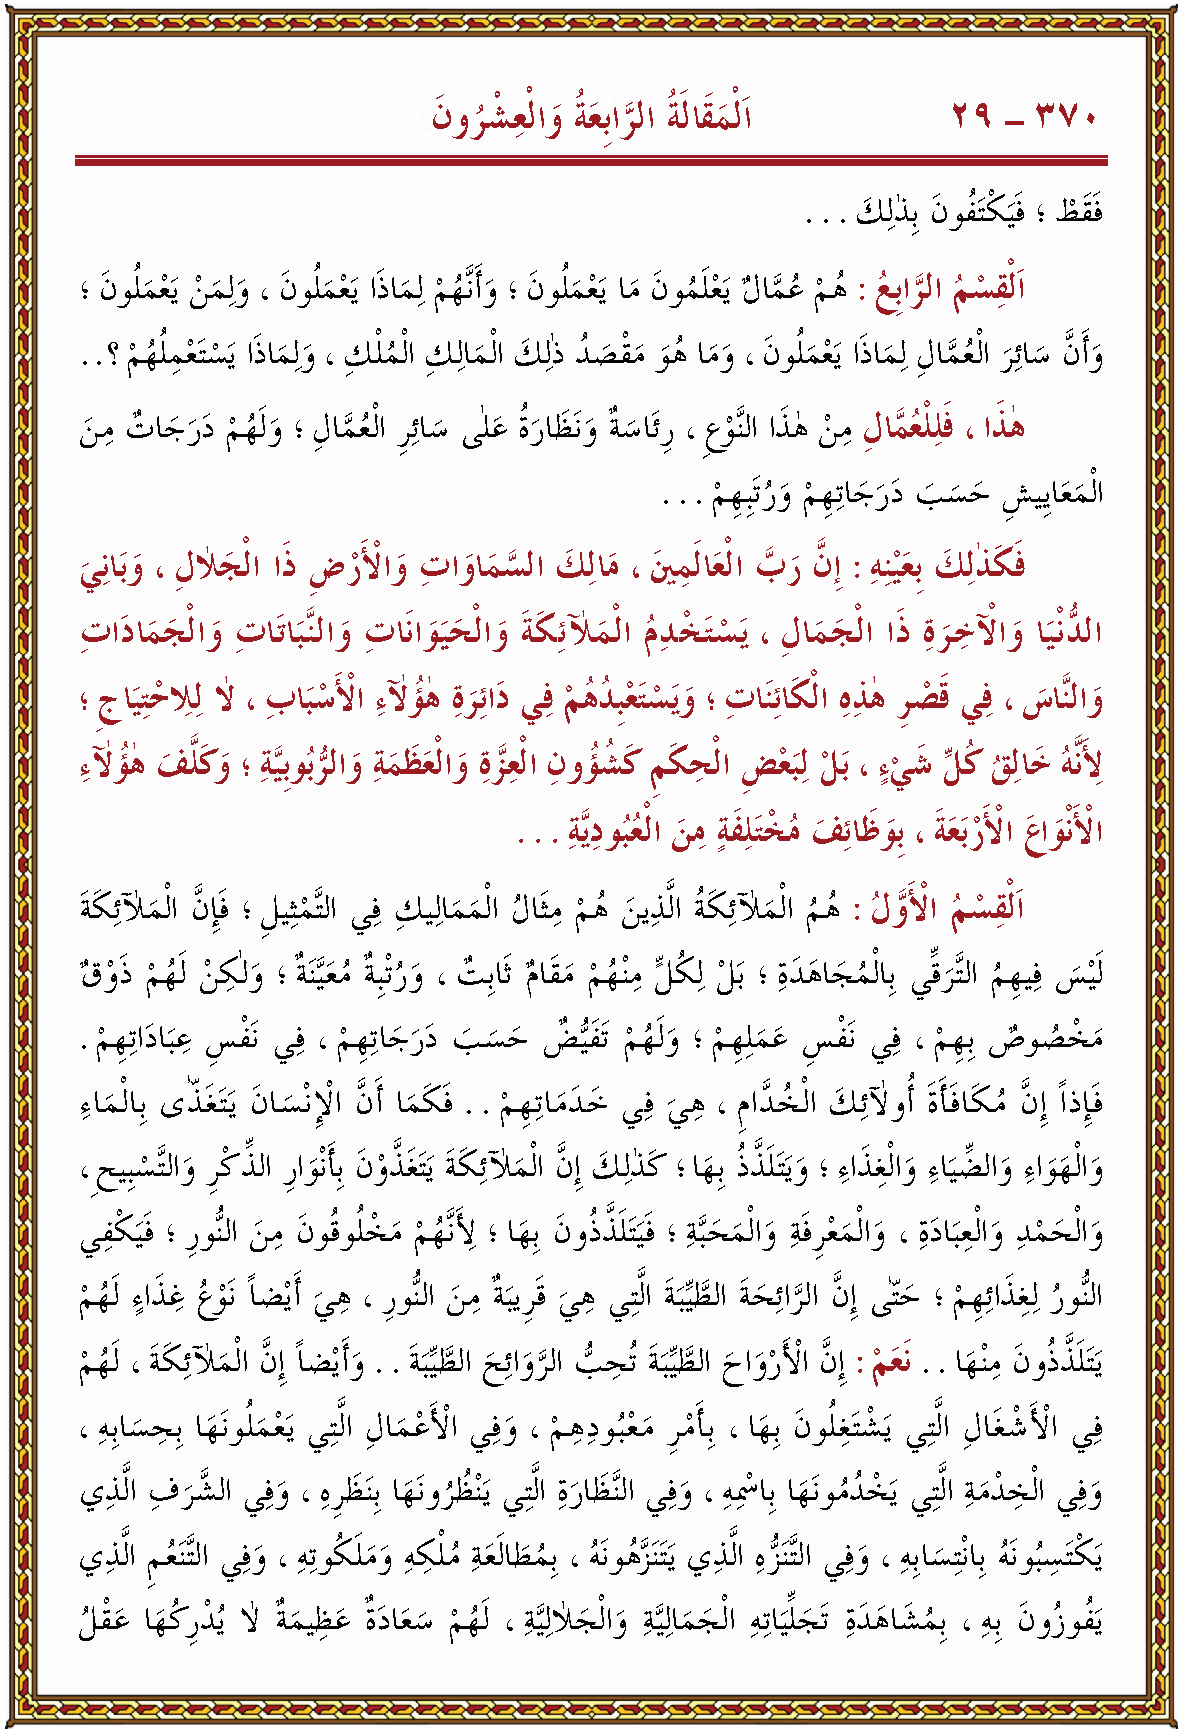 ٣٧٠ – ٢٩ اَلْمَقَالَةُ الرَّابِعَةُ وَالْعِشْرُونَ
فَقَطْ ؛ فَيَكْتَفُونَ بِذٰلِكَ . . .
اَلْقِسْمُ الرَّابِعُ : هُمْ عُمَّالٌ يَعْلَمُونَ مَا يَعْمَلُونَ ؛ وَأَنَّهُمْ لِمَاذَا يَعْمَلُونَ ، وَلِمَنْ يَعْمَلُونَ ؛
وَأَنَّ سَائِرَ الْعُمَّالِ لِمَاذَا يَعْمَلُونَ ، وَمَا هُوَ مَقْصَدُ ذٰلِكَ الْمَالِكِ الْمُلْكِ ، وَلِمَاذَا يَسْتَعْمِلُهُمْ ؟ . .
هٰذَا ، فَلِلْعُمَّالِ مِنْ هٰذَا النَّوْعِ ، رِئَاسَةٌ وَنَظَارَةُ عَلٰى سَائِرِ الْعُمَّالِ ؛ وَلَهُمْ دَرَجَاتٌ مِنَ
الْمَعَايِيشِ حَسَبَ دَرَجَاتِهِمْ وَرُتَبِهِمْ . . .
فَكَذٰلِكَ بِعَيْنِهِ : إِنَّ رَبَّ الْعَالَمِينَ ، مَالِكَ السَّمَاوَاتِ وَالْأَرْضِ ذَا الْجَلَالِ ، وَبَانِيَ
الدُّنْيَا وَالْآخِرَةِ ذَا الْجَمَالِ ، يَسْتَخْدِمُ الْمَلٰٓائِكَةَ وَالْحَيَوَانَاتِ وَالنَّبَاتَاتِ وَالْجَمَادَاتِ
وَالنَّاسَ ، فِي قَصْرِ هٰذِهِ الْكَائِنَاتِ ؛ وَيَسْتَعْبِدُهُمْ فِي دَائِرَةِ هٰؤُلٰٓاءِ الْأَسْبَابِ ، لَا لِلِاحْتِيَاجِ ؛
لِأَنَّهُ خَالِقُ كُلِّ شَيْءٍ ، بَلْ لِبَعْضِ الْحِكَمِ كَشُؤُونِ الْعِزَّةِ وَالْعَظَمَةِ وَالرُّبُوبِيَّةِ ؛ وَكَلَّفَ هٰؤُلٰٓاءِ
الْأَنْوَاعَ الْأَرْبَعَةَ ، بِوَظَائِفَ مُخْتَلِفَةٍ مِنَ الْعُبُودِيَّةِ . . .
اَلْقِسْمُ الْأَوَّلُ : هُمُ الْمَلٰٓائِكَةُ الَّذِينَ هُمْ مِثَالُ الْمَمَالِيكِ فِي التَّمْثِيلِ ؛ فَإِنَّ الْمَلٰٓائِكَةَ
لَيْسَ فِيهِمُ التَّرَقِّي بِالْمُجَاهَدَةِ ؛ بَلْ لِكُلٍّ مِنْهُمْ مَقَامٌ ثَابِتٌ ، وَرُتْبَةٌ مُعَيَّنَةٌ ؛ وَلٰكِنْ لَهُمْ ذَوْقٌ
مَخْصُوصٌ بِهِمْ ، فِي نَفْسِ عَمَلِهِمْ ؛ وَلَهُمْ تَفَيُّضٌ حَسَبَ دَرَجَاتِهِمْ ، فِي نَفْسِ عِبَادَاتِهِمْ .
فَإِذاً إِنَّ مُكَافَأَةَ أُولٰٓئِكَ الْخُدَّامِ ، هِيَ فِي خَدَمَاتِهِمْ . . فَكَمَا أَنَّ الْإِنْسَانَ يَتَغَذّٰى بِالْمَاءِ
وَالْهَوَاءِ وَالضِّيَاءِ وَالْغِذَاءِ ؛ وَيَتَلَذَّذُ بِهَا ؛ كَذٰلِكَ إِنَّ الْمَلٰٓائِكَةَ يَتَغَذَّوْنَ بِأَنْوَارِ الذِّكْرِ وَالتَّسْبِيحِ ،
وَالْحَمْدِ وَالْعِبَادَةِ ، وَالْمَعْرِفَةِ وَالْمَحَبَّةِ ؛ فَيَتَلَذَّذُونَ بِهَا ؛ لِأَنَّهُمْ مَخْلُوقُونَ مِنَ النُّورِ ؛ فَيَكْفِي
النُّورُ لِغِذَائِهِمْ ؛ حَتّٰى إِنَّ الرَّائِحَةَ الطَّيِّبَةَ الَّتِي هِيَ قَرِيبَةٌ مِنَ النُّورِ ، هِيَ أَيْضاً نَوْعُ غِذَاءٍ لَهُمْ
يَتَلَذَّذُونَ مِنْهَا . . نَعَمْ : إِنَّ الْأَرْوَاحَ الطَّيِّبَةَ تُحِبُّ الرَّوَائِحَ الطَّيِّبَةَ . . وَأَيْضاً إِنَّ الْمَلٰٓائِكَةَ ، لَهُمْ
فِي الْأَشْغَالِ الَّتِي يَشْتَغِلُونَ بِهَا ، بِأَمْرِ مَعْبُودِهِمْ ، وَفِي الْأَعْمَالِ الَّتِي يَعْمَلُونَهَا بِحِسَابِهِ ،
وَفِي الْخِدْمَةِ الَّتِي يَخْدُمُونَهَا بِاسْمِهِ ، وَفِي النَّظَارَةِ الَّتِي يَنْظُرُونَهَا بِنَظَرِهِ ، وَفِي الشَّرَفِ الَّذِي
يَكْتَسِبُونَهُ بِانْتِسَابِهِ ، وَفِي التَّنَزُّهِ الَّذِي يَتَنَزَّهُونَهُ ، بِمُطَالَعَةِ مُلْكِهِ وَمَلَكُوتِهِ ، وَفِي التَّنَعُّمِ الَّذِي
يَفُوزُونَ بِهِ ، بِمُشَاهَدَةِ تَجَلِّيَاتِهِ الْجَمَالِيَّةِ وَالْجَلَالِيَّةِ ، لَهُمْ سَعَادَةٌ عَظِيمَةٌ لَا يُدْرِكُهَا عَقْلُ